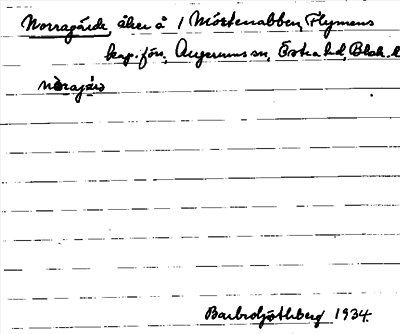 Norragärde, åker å 1 Mörtenabben, Flymens
kap.för, Augerums sn, Östra hd, Blek. l
Barbro Göthberg 1934.